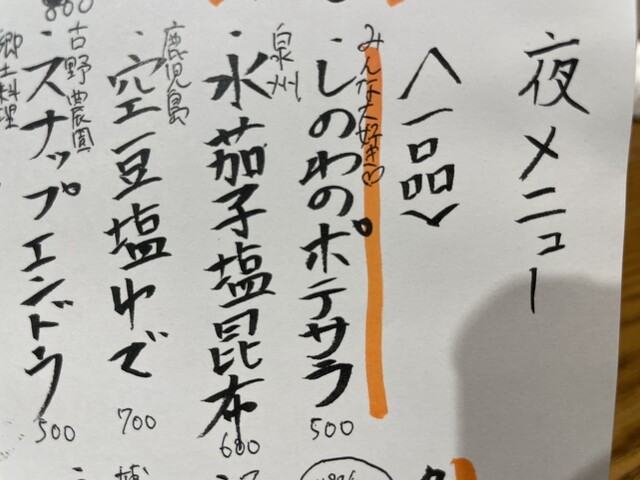 夜メニュー
〈一品〉
みんな大好き♡
・しのわのポテサラ
500
泉州
・水茄子塩昆布
600
鹿児島
・空豆塩ゆで
700
古野農園
・スナップエンドウ
500
郷土料理